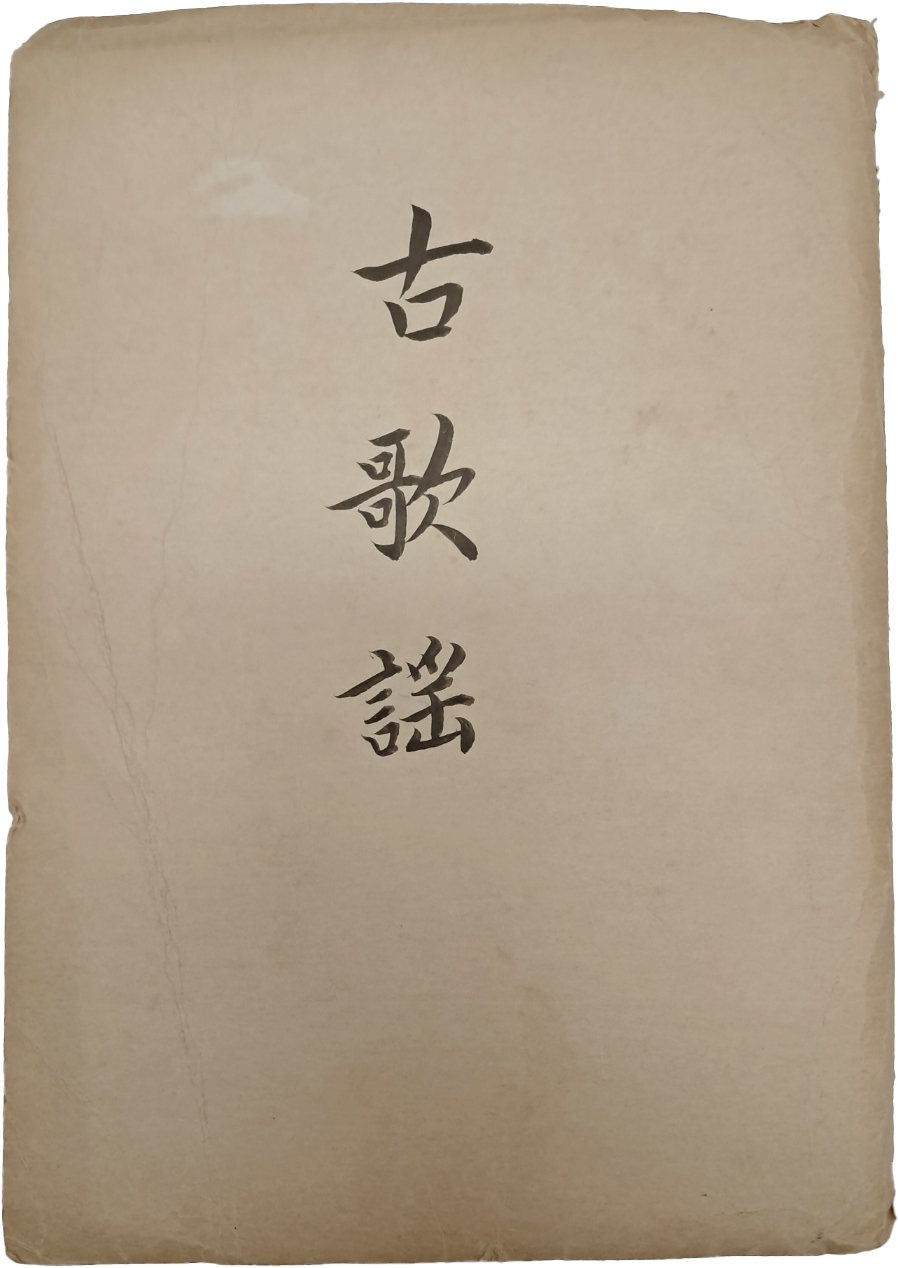 古歌謡